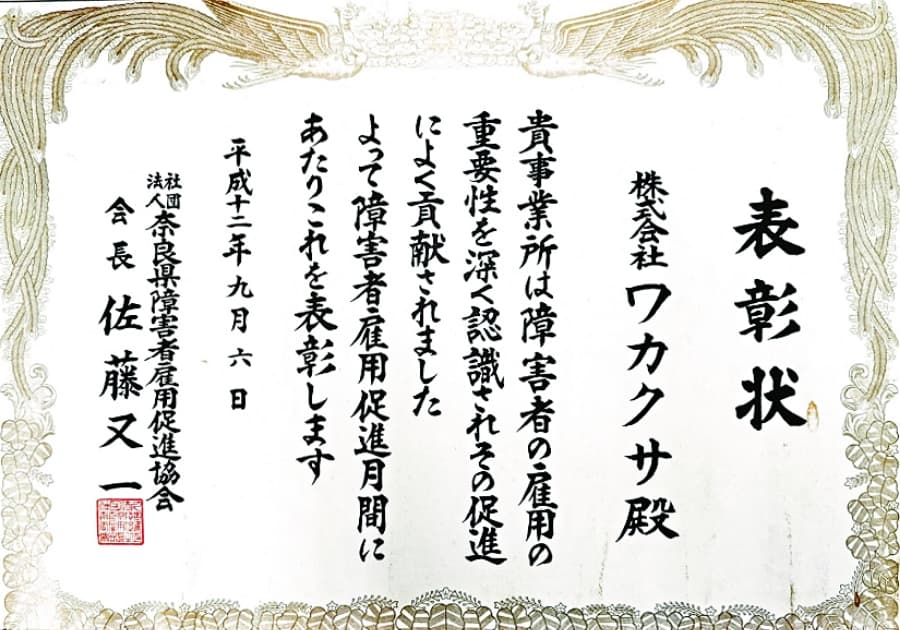 表彰状
株式会社ワカクサ殿
貴事業所は障害者の雇用の
重要性を深く認識されその促進
によく貢献されました
よって障害者雇用促進月間に
あたりこれを表彰します
平成十二年九月六日
社団法人奈良県障害者雇用促進協会
会長 佐藤又一